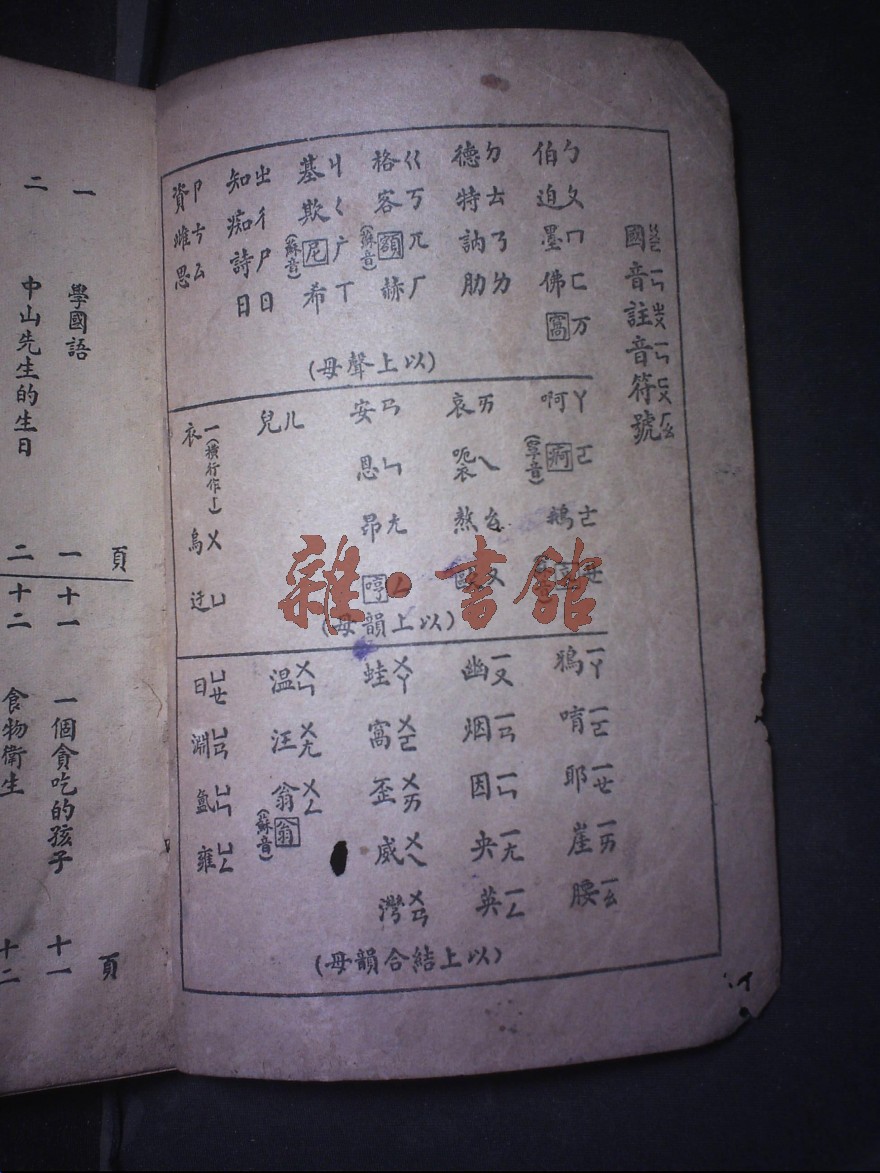 國音註音符號
ㄅ伯 ㄆ迫 ㄇ墨 ㄈ佛 万窩
ㄉ德 ㄊ特 ㄋ訥 ㄌ肋
ㄍ格 ㄎ客 兀額(蘇音) ㄏ赫
ㄐ基 ㄑ欺 广尼(蘇音) ㄒ希
ㄓ知 ㄔ痴 ㄕ詩 ㄖ日
ㄗ資 ㄘ雌 ㄙ思
(以上聲母)
ㄚ啊 ㄛ痾 ㄜ鵝 ㄝ
ㄞ哀 ㄟ ㄠ熬 ㄡ歐
ㄢ安 ㄣ恩 ㄤ昂 ㄥ哼
ㄦ兒
一衣(橫行作丨) ㄨ烏 ㄩ迂
(以上韻母)
一ㄚ鴉 一ㄛ唷 一ㄝ耶 一ㄞ崖 一ㄠ腰
一ㄡ幽 一ㄢ烟 一ㄣ因 一ㄤ央 一ㄥ英
ㄨㄚ蛙 ㄨㄛ窩 ㄨㄞ歪 ㄨㄟ威 ㄨㄢ灣
ㄨㄣ溫 ㄨㄤ汪 ㄨㄥ翁翁(蘇音)
ㄩㄝ曰 ㄩㄢ淵 ㄩㄣ氳 ㄩㄥ雍
(以上結合韻母)
頁 頁
一 學國語 一 十一 一個貪吃的孩子 十一
二 中山先生的生日 二 十二 食物衛生 十二
雜·書館